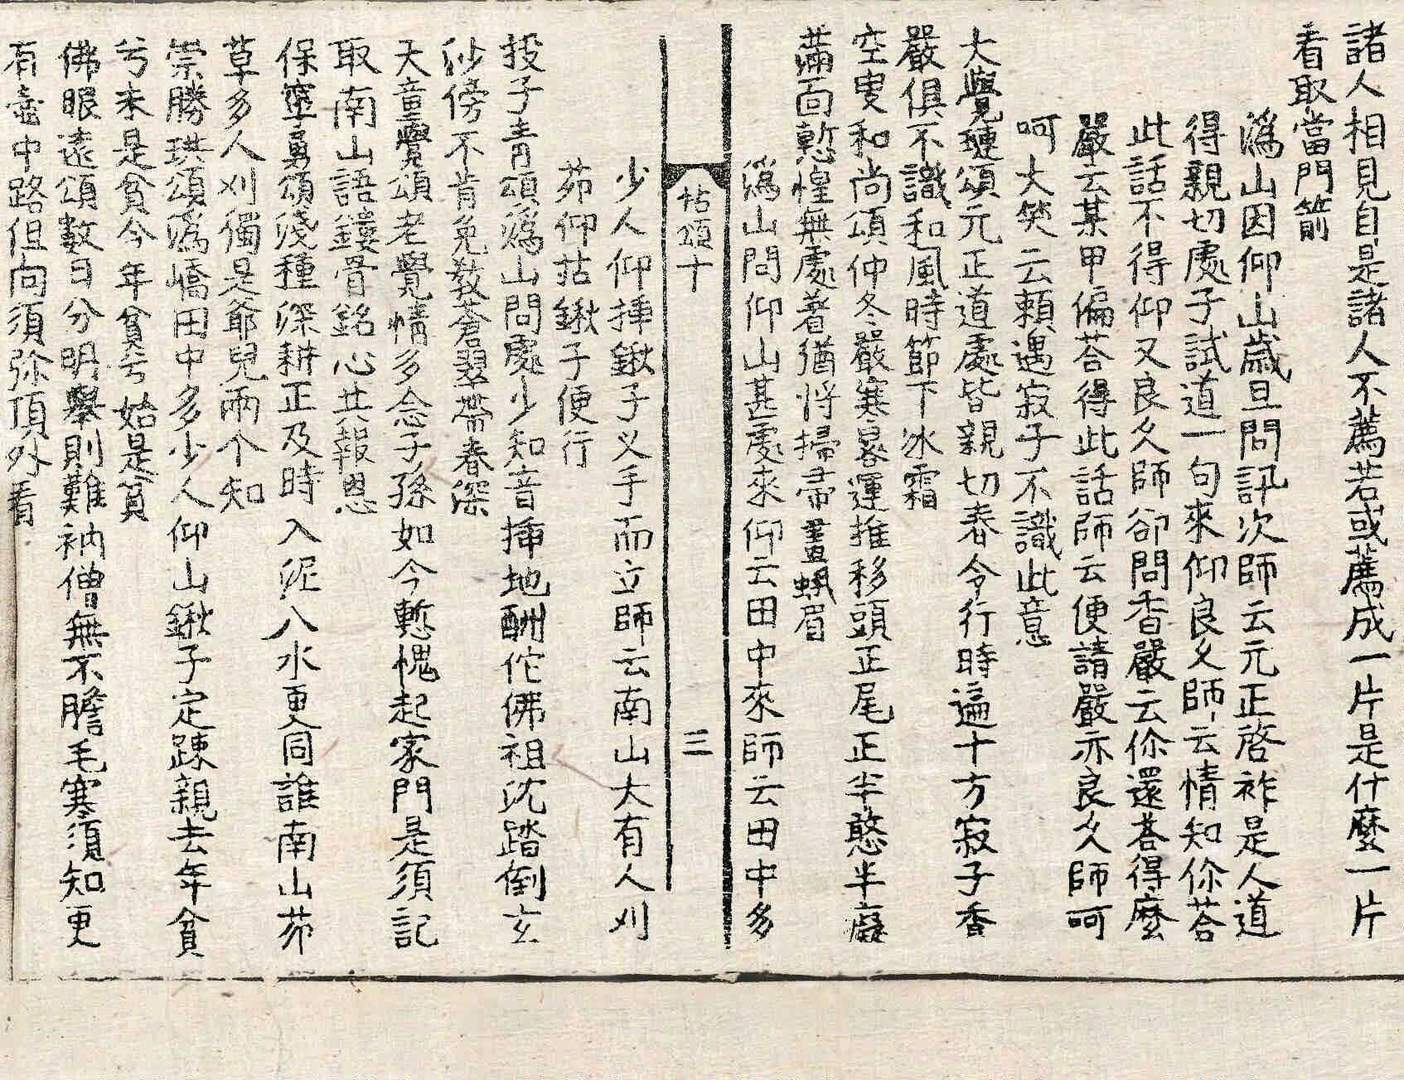 諸人相見自是諸人不薦若或薦成一片是什麽一片
看取當門箭
潙山因仰山歲旦問訊次師云元正啓祚是人道
得親切處子試道一句來仰良久師云情知你荅
此話不得仰又良久師卻問香嚴云你還荅得麽
嚴云某甲偏荅得此話師云便請嚴亦良久師呵
呵大笑云賴遇寂子不識此意
大覺璉頌元正道處皆親切春令行時遍十方寂子香
嚴俱不識和風時節下冰霜
空叟和尚頌仲冬嚴寒晷運推移頭正尾正半憨半癡
滿面慙惶無處著猶將掃帚畫蛾眉
潙山問仰山甚處來仰云田中來師云田中多
拈頌十 三
少人仰揷鍬子叉手而立師云南山大有人刈
茆仰拈鍬子便行
投子青頌潙山問處少知音揷地酬佗佛祖沈踏倒玄
沙傍不肯免教蒼翠帶春深
天童覺頌老覺情多念子孫如今慙愧起家門是須記
取南山語鏤骨銘心共報恩
保寧勇頌淺種深耕正及時入泥入水更同誰南山茆
草多人刈獨是爺兒兩个知
崇勝珙頌潙嶠田中多少人仰山鍬子定踈親去年貧
兮未是貧今年貧兮始是貧
佛眼遠頌數目分明舉則難衲僧無不膽毛寒須知更
有壷中路但向須弥頂外看